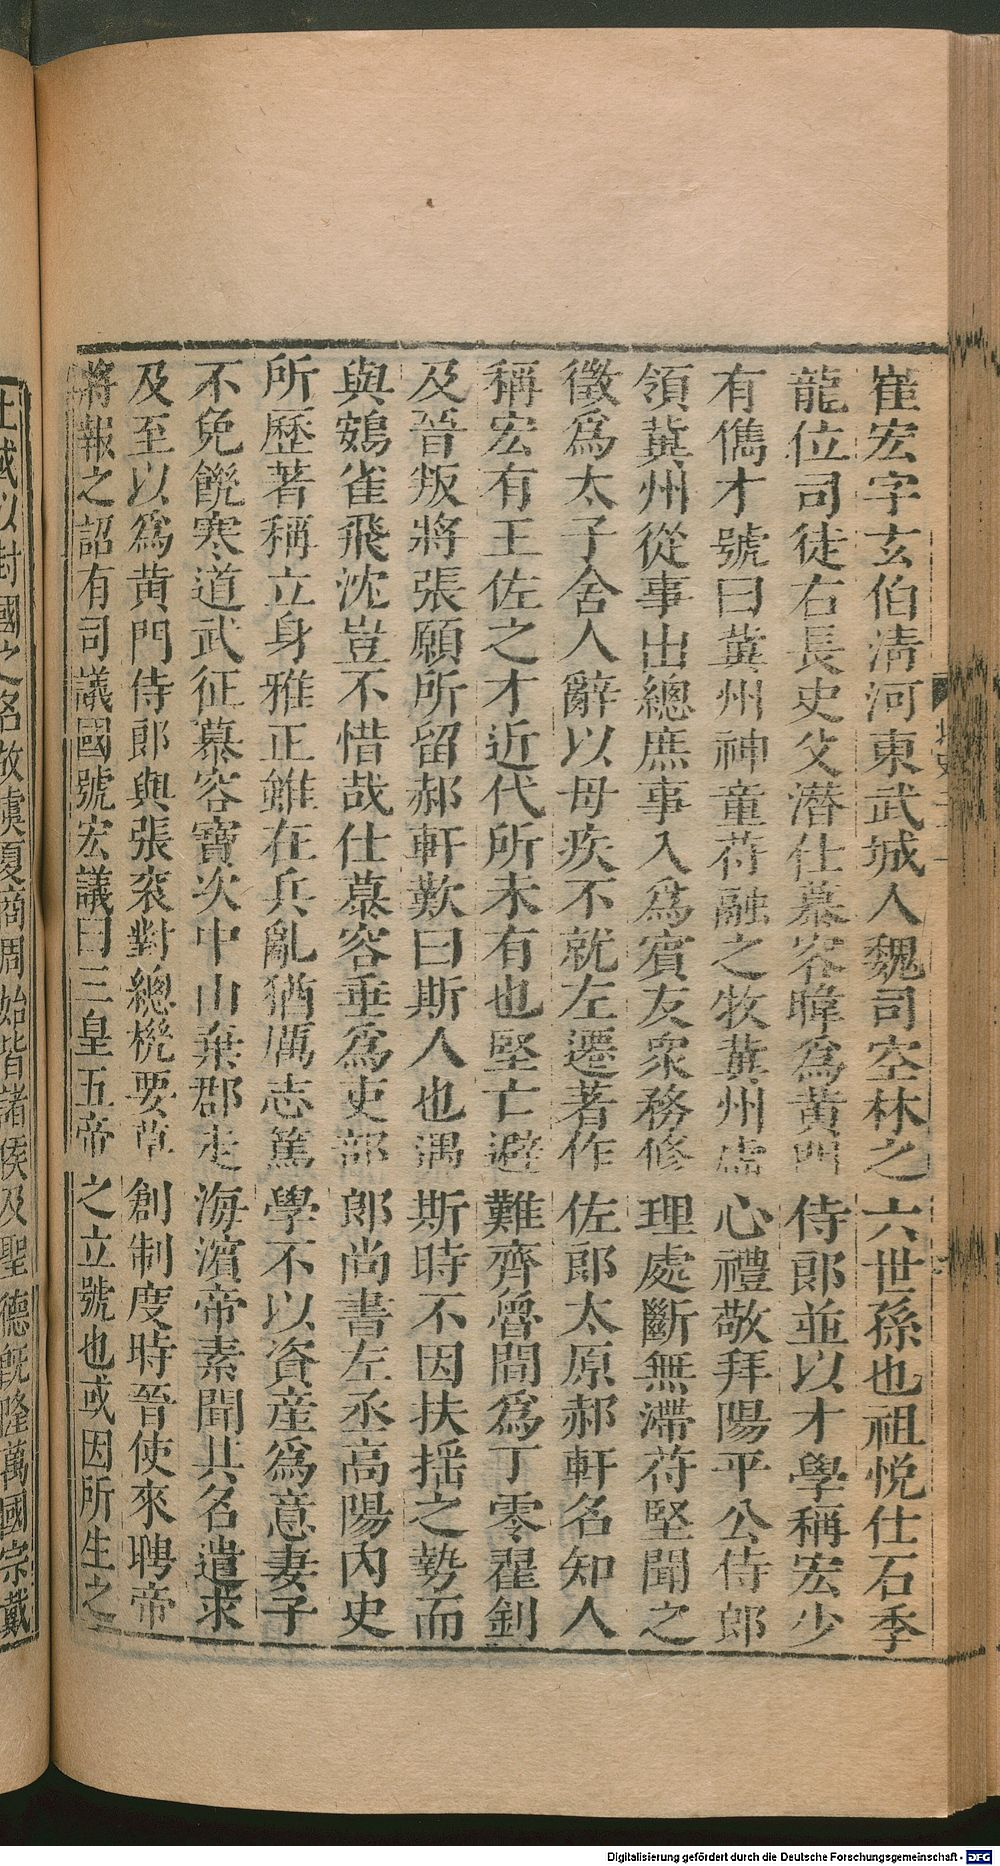 崔宏字玄伯清河東武城人魏司空林之六世孫也祖悅仕石季
龍位司徒右長史父潛仕慕容暐爲黃門侍郎並以才學稱宏少
有儁才號曰冀州神童苻融之牧冀州虛心禮敬拜陽平公侍郎
領冀州從事出總庶事入爲賓友衆務修理處斷無滯苻堅聞之
徵爲太子舍人辭以母疾不就左遷著作佐郎太原郝軒名知人
稱宏有王佐之才近代所未有也堅亡避難齊魯間爲丁零翟釗
及晉叛將張願所留郝軒歎曰斯人也遇斯時不因扶搖之勢而
與鷃雀飛沈豈不惜哉仕慕容垂爲吏部郎尚書左丞高陽內史
所歷著稱立身雅正雖在兵亂猶厲志篤學不以資産爲意妻子
不免饑寒道武征慕容寶次中山棄郡走海濱帝素聞其名遣求
及至以爲黃門侍郎與張袞對總機要草創制度時晉使來聘帝
將報之詔有司議國號宏議曰三皇五帝之立號也或因所生之
土或以封國之名故虞夏商周始皆諸侯及聖德旣隆萬國宗戴
Digitalisierung gefördert durch die Deutsche Forschungsgemeinschaft - DFG